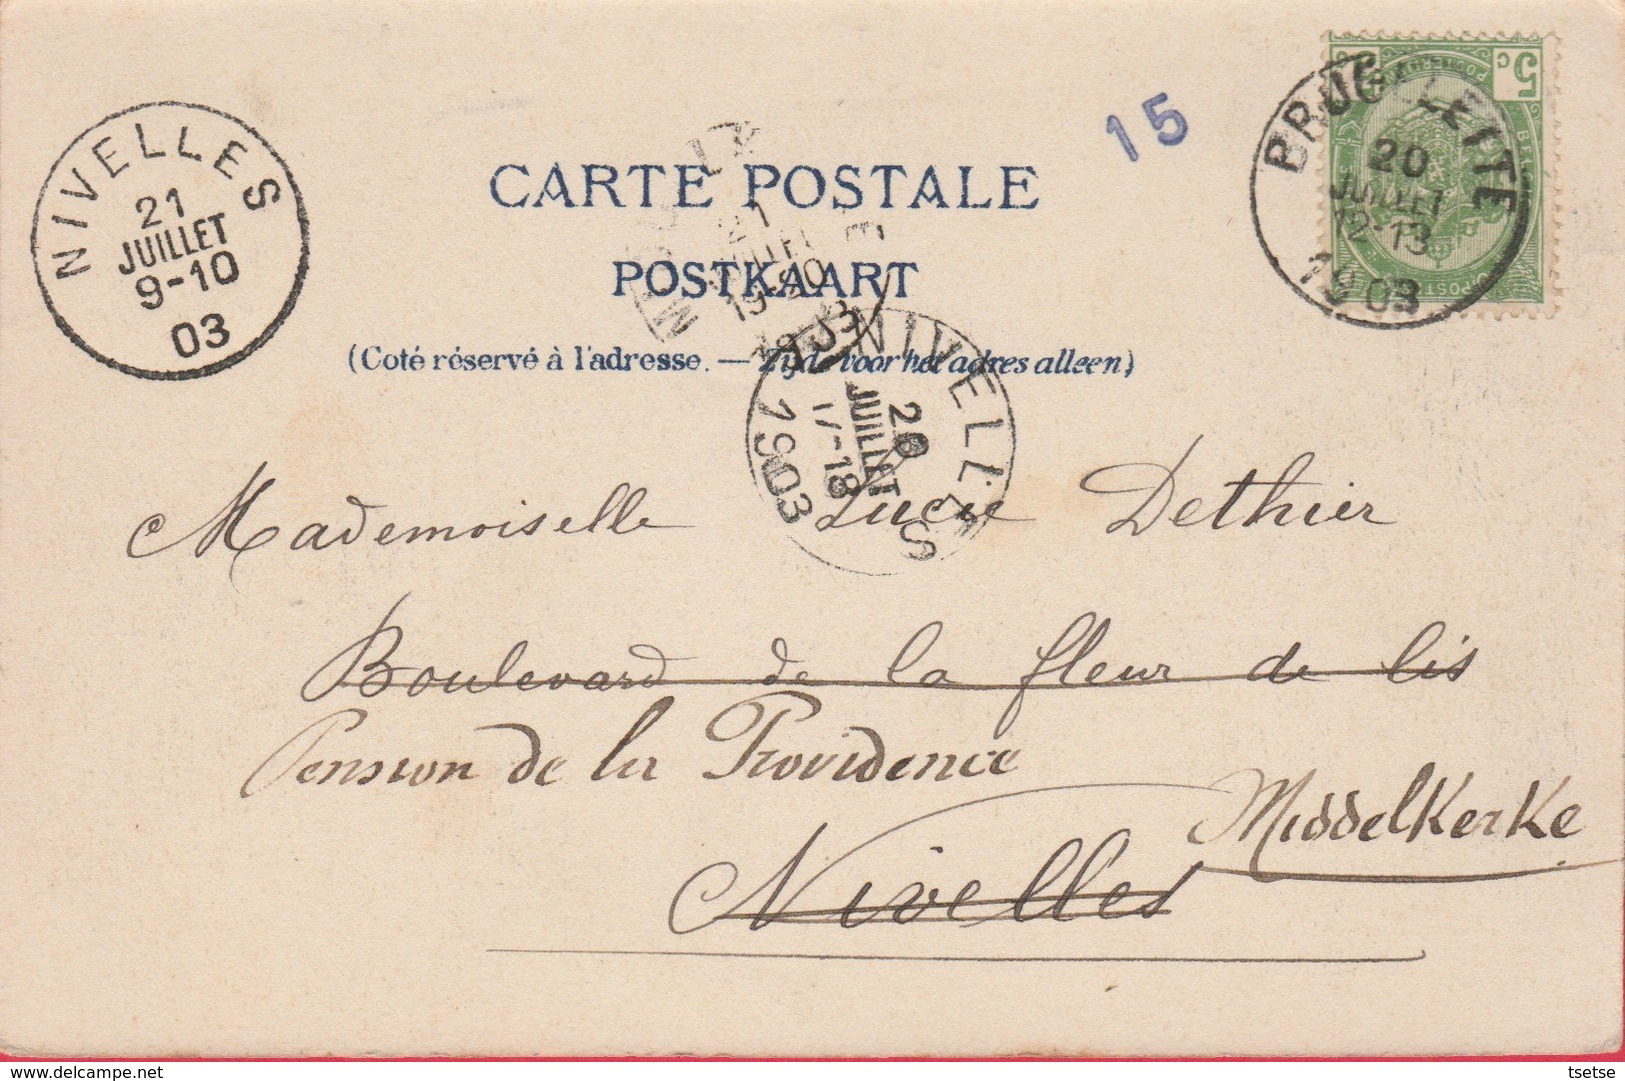 NIVELLES
21
JUILLET
9-10
03
CARTE POSTALE
POSTKAART
(Coté réservé à l'adresse. — Zijde voor het adres alleen)
15
5 c
BRUGELETTE
20
JUILLET
12-13
1903
NIVELLES
20
JUILLET
17-18
1903
Mademoiselle Lucie Dethier
Boulevard de la fleur de lis
Pension de la Providence
Middelkerke
Nivelles
delcampe.net
tsetse